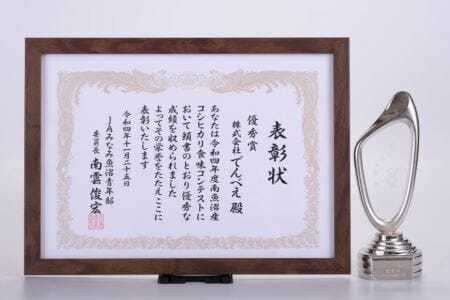 表彰状
優秀賞
株式会社でんべえ 殿
あなたは令和四年度南魚沼産
コシヒカリ食味コンテストに
おいて頭書のとおり優秀な
成績を収められました
よってその栄誉をたたえここに
表彰いたします
令和四年十一月二十五日
JAみなみ魚沼青年部
委員長 南雲俊宏